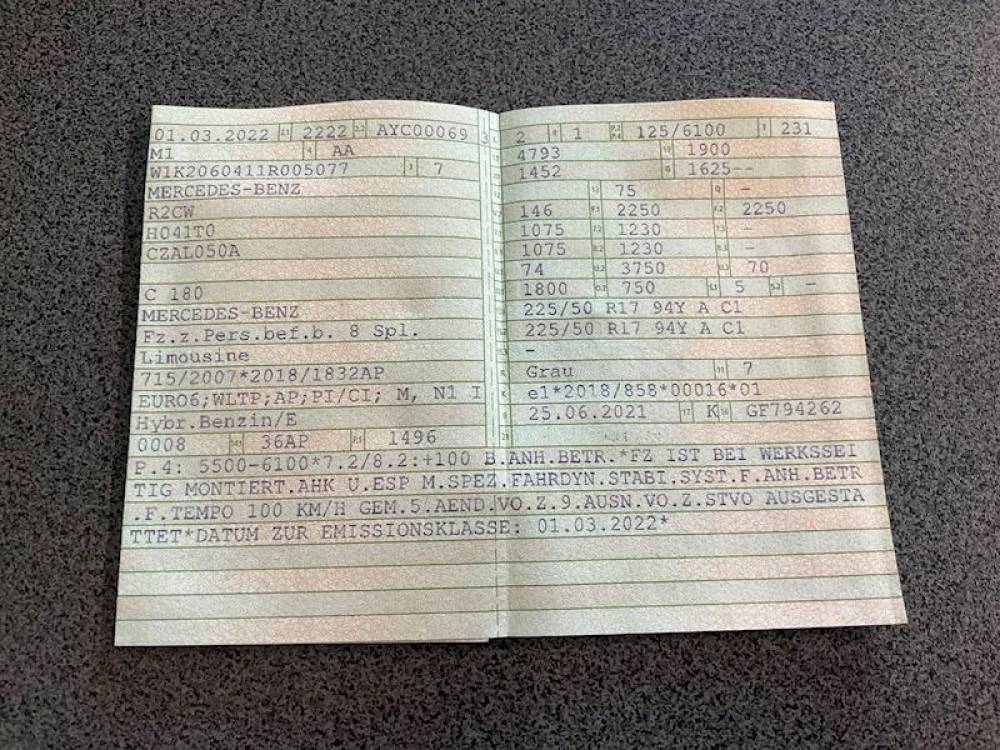 01.03.2022 2222 AYC00069 3
M1 AA
W1K2060411R005077 7
MERCEDES-BENZ
R2CW
H041T0
CZAL050A
C 180
MERCEDES-BENZ
Fz.z.Pers.bef.b. 8 Spl.
Limousine
715/2007*2018/1832AP
EURO6;WLTP;AP;PI/CI; M, N1 I
Hybr.Benzin/E
0008 36AP 1496
2 1 125/6100 231
4793 1900
1452 1625--
75 -
146 2250 2250
1075 1230 -
1075 1230 -
74 3750 70
1800 750 5 -
225/50 R17 94Y A C1
225/50 R17 94Y A C1
-
Grau 7
e1*2018/858*00016*01
25.06.2021 K GF794262
P.4: 5500-6100*7.2/8.2:+100 B.ANH.BETR.*FZ IST BEI WERKSSEI
TIG MONTIERT.AHK U.ESP M.SPEZ.FAHRDYN.STABI.SYST.F.ANH.BETR
.F.TEMPO 100 KM/H GEM.5.AEND.VO.Z.9.AUSN.VO.Z.STVO AUSGESTA
TTET*DATUM ZUR EMISSIONSKLASSE: 01.03.2022*